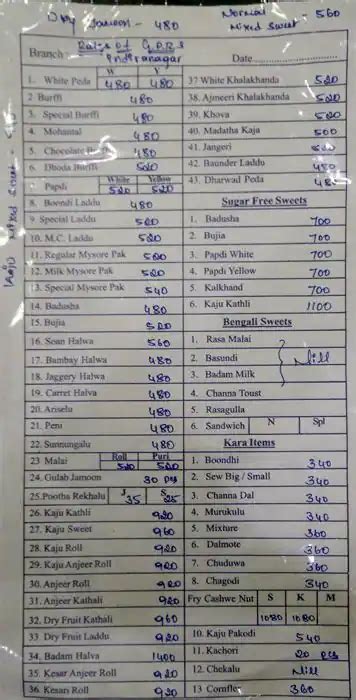 Dry Jamoon - 480
Normal Mixed Sweet : 560
Kaju Mixed Sweet -
Rates of G.P.R.S
Branch : Indiranagar
Date
W Y
1. White Peda 480 480
2 Burffi 480
3. Special Burffi 480
4. Mohantal 480
5. Chocolate Burffi 480
6. Dhoda Burffi 520
White Yellow
7. Papdi 520 520
8. Boondi Laddu 480
9. Special Laddu 520
10. M.C. Laddu 520
11. Regular Mysore Pak 560
12. Milk Mysore Pak 520
13. Special Mysore Pak 540
14. Badusha 480
15. Bujia 520
16. Soan Halwa 560
17. Bambay Halwa 480
18. Jaggery Halwa 480
19. Carret Halva 480
20. Ariselu 480
21. Peni 480
22. Sunnungalu 480
Roll Puri
23 Malai 520 520
24. Gulab Jamoon 30 pcs
25. Pootha Rekhalu J 35 S 25
26. Kaju Kathli 920
27. Kaju Sweet 960
28. Kaju Roll 920
29. Kaju Anjeer Roll 920
30. Anjeer Roll 920
31. Anjeer Kathali 920
32. Dry Fruit Kathali 960
33. Dry Fruit Laddu 920
34. Badam Halva 1400
35. Kesar Anjeer Roll 920
36. Kesari Roll 920
37 White Khalakhanda 520
38. Ajmeeri Khalakhanda 520
39. Khova 520
40. Madatha Kaja 500
41. Jangeri 520
42. Baunder Laddu 480
43. Dharwad Peda 480
Sugar Free Sweets
1. Badusha 700
2. Bujia 700
3. Papdi White 700
4. Papdi Yellow 700
5. Kalkhand 700
6. Kaju Kathli 1100
Bengali Sweets
1. Rasa Malai
2. Basundi Nill
3. Badam Milk
4. Channa Toust
5. Rasagulla
6. Sandwich N Spl
Kara Items
1. Boondhi 340
2. Sew Big / Small 340
3. Channa Dal 340
4. Murukulu 340
5. Mixture 360
6. Dalmote 360
7. Chuduwa 360
8. Chagodi 340
Fry Cashwe Nut S K M
1080 1080
10. Kaju Pakodi 540
11. Kachori 20 pcs
12. Chekalu Nill
13 Cornfle 360